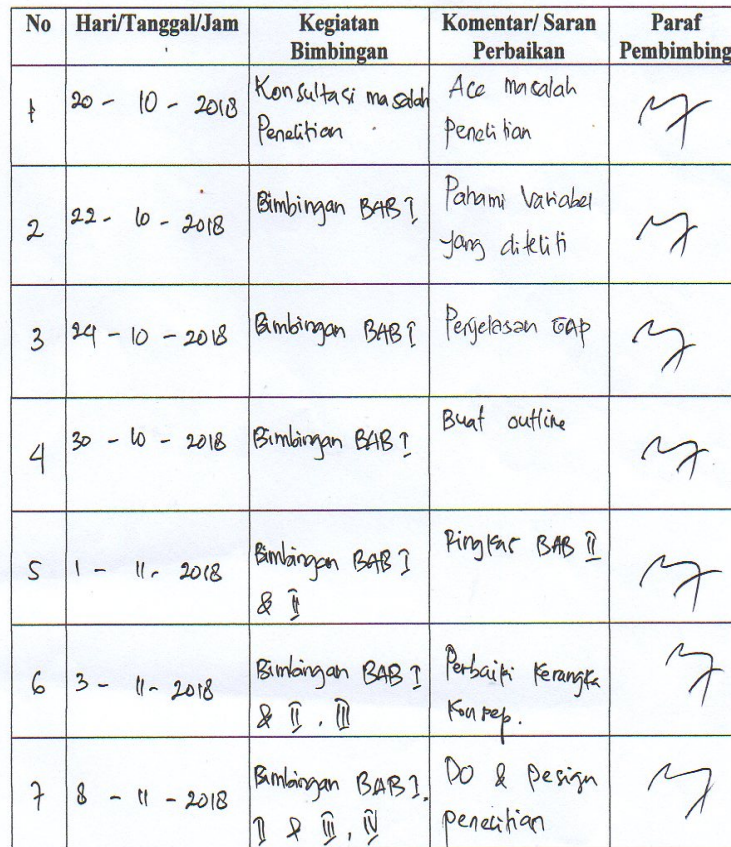 No Hari/Tanggal/Jam Kegiatan Bimbingan Komentar/ Saran Perbaikan Paraf Pembimbing
1 20 - 10 - 2018 Konsultasi masalah Acc masalah
Penelitian penelitian
2 22 - 10 - 2018 Bimbingan BAB I Pahami Variabel
yang diteliti
3 24 - 10 - 2018 Bimbingan BAB I Penjelasan GAP
4 30 - 10 - 2018 Bimbingan BAB I Buat outline
5 1 - 11 - 2018 Bimbingan BAB I Ringkas BAB II
& II
6 3 - 11 - 2018 Bimbingan BAB I Perbaiki Kerangka
& II, III Konsep.
7 8 - 11 - 2018 Bimbingan BAB I, DO & Design
II & III, IV penelitian